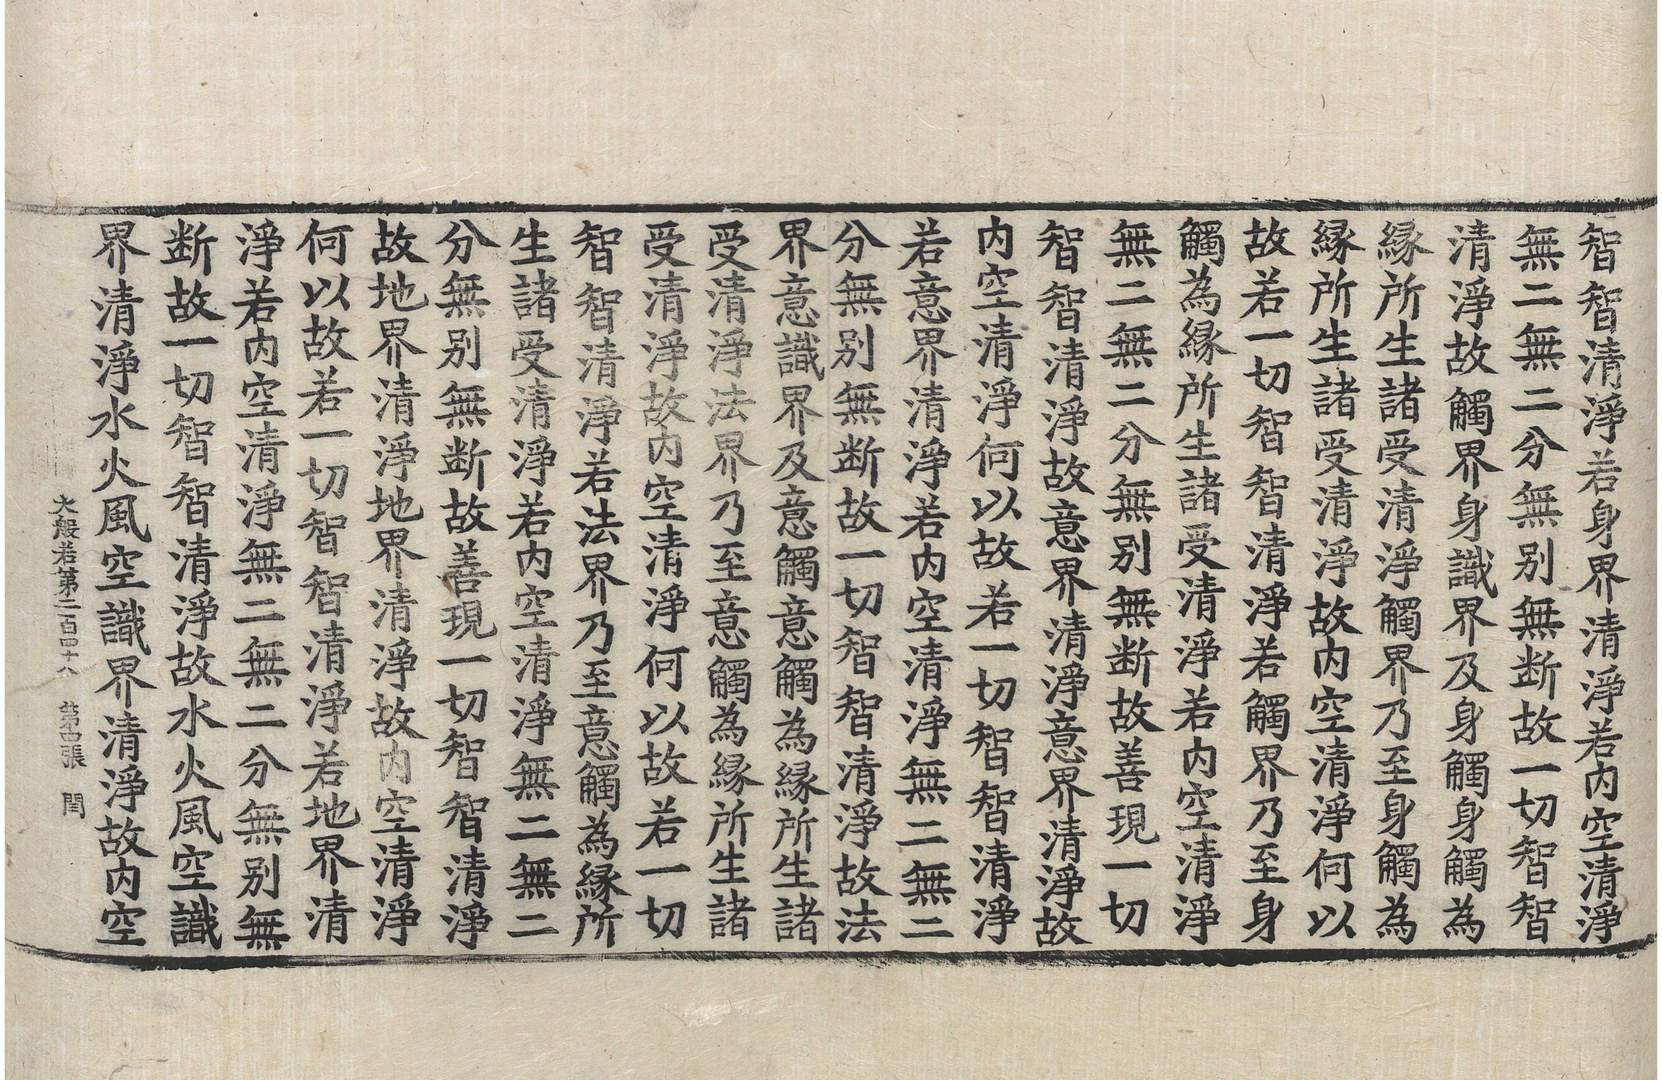 智智清淨若身界清淨若内空清淨
無二無二分無别無断故一切智智
清淨故觸界身識界及身觸身觸為
縁所生諸受清淨觸界乃至身觸為
縁所生諸受清淨故内空清淨何以
故若一切智智清淨若觸界乃至身
觸為縁所生諸受清淨若内空清淨
無二無二分無别無断故善現一切
智智清淨故意界清淨意界清淨故
内空清淨何以故若一切智智清淨
若意界清淨若内空清淨無二無二
分無别無断故一切智智清淨故法
界意識界及意觸意觸為縁所生諸
受清淨法界乃至意觸為縁所生諸
受清淨故内空清淨何以故若一切
智智清淨若法界乃至意觸為縁所
生諸受清淨若内空清淨無二無二
分無别無断故善現一切智智清淨
故地界清淨地界清淨故内空清淨
何以故若一切智智清淨若地界清
淨若内空清淨無二無二分無别無
断故一切智智清淨故水火風空識
界清淨水火風空識界清淨故内空
大般若第二百四十八 第四張 閏